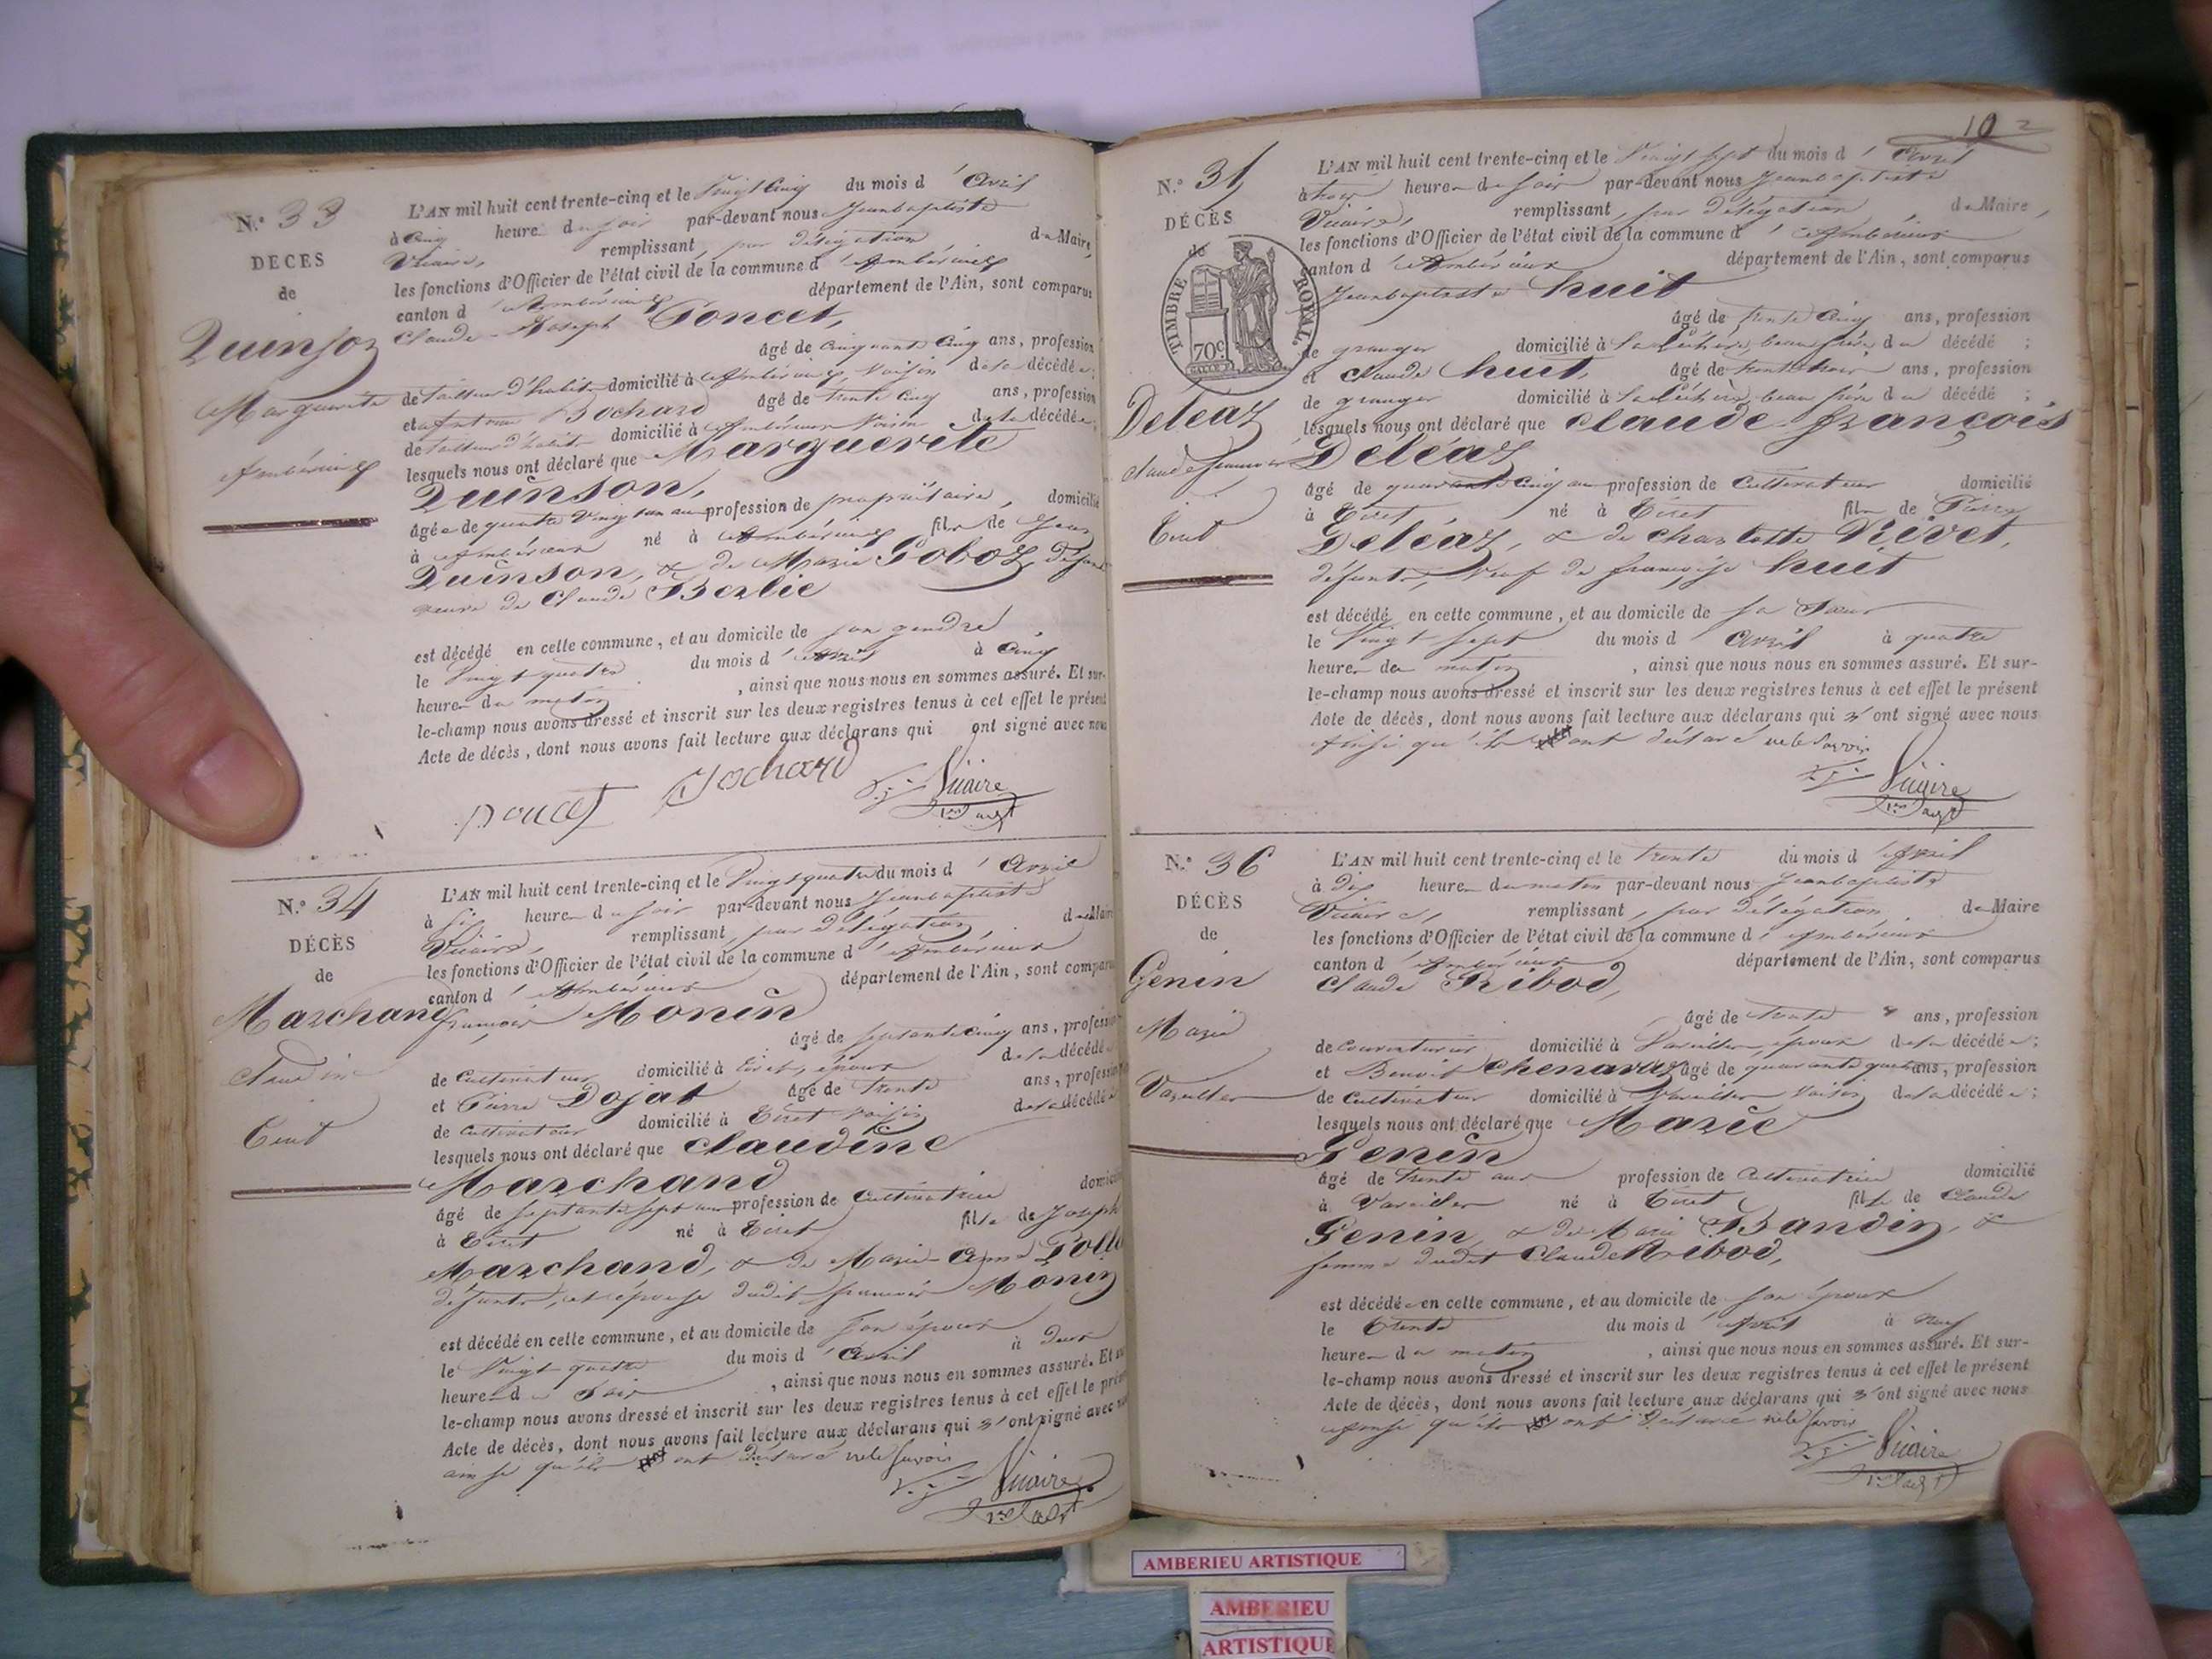 N.º 33
DÉCÈS
de
Quinson
Marguerite
Ambérieux
L'AN mil huit cent trente-cinq et le Vingt Cinq du mois d' Avril
à Cinq heures du soir par-devant nous Jeanbaptiste
Vicaire, remplissant, par délégation du Maire,
les fonctions d'Officier de l'état civil de la commune d' Ambérieux
canton d' Ambérieux département de l'Ain, sont comparus
Claude-Joseph Poncet,
âgé de Cinquante Cinq ans, profession
de tailleur d'habits domicilié à Ambérieux, Voisin de la décédée;
et Antoine Bochard âgé de trente Cinq ans, profession
de tailleur d'habits domicilié à Ambérieux Voisin de la décédée;
lesquels nous ont déclaré que Marguerite
Quinson,
âgée de quatre Vingt un ans profession de propriétaire, domicilié
à Ambérieux né à Ambérieux fille de Jean
Quinson, & de Marie Goboz,
veuve de Claude Berlie
est décédé en cette commune, et au domicile de son gendre
le Vingt quatre du mois d' Avril à Cinq
heures du matin, ainsi que nous nous en sommes assuré. Et sur-
le-champ nous avons dressé et inscrit sur les deux registres tenus à cet effet le présent
Acte de décès, dont nous avons fait lecture aux déclarans qui ont signé avec nous
poncet Bochard Vicaire
N.º 34
DÉCÈS
de
Marchand
Claudine
Tiret
L'AN mil huit cent trente-cinq et le Vingt quatre du mois d' Avril
à six heures du soir par-devant nous Jeanbaptiste
Vicaire, remplissant, par délégation du Maire
les fonctions d'Officier de l'état civil de la commune d' Ambérieux
canton d' Ambérieux département de l'Ain, sont comparus
françois Monin
âgé de septante Cinq ans, profession
de Cultivateur domicilié à Tiret, époux de la décédée
et Pierre Dojat âgé de trente ans, profession
de Cultivateur domicilié à Tiret voisin de la décédée
lesquels nous ont déclaré que Claudine
Marchand
âgé de septante sept ans profession de Cultivatrice domicilié
à Tiret né à Tiret fille de Joseph
Marchand, & de Marie-Anne
défunts, et épouse dudit françois Monin
est décédé en cette commune, et au domicile de son époux
le Vingt quatre du mois d' Avril à deux
heures du soir, ainsi que nous nous en sommes assuré. Et sur-
le-champ nous avons dressé et inscrit sur les deux registres tenus à cet effet le présent
Acte de décès, dont nous avons fait lecture aux déclarans qui n'ont signé avec nous
ainsi qu'ils ont déclaré ne le savoir
Vicaire
10 2
N.º 35
DÉCÈS
de
TIMBRE ROYAL.
70c
Deléaz
Claude françois
Tiret
L'AN mil huit cent trente-cinq et le Vingt sept du mois d' Avril
à trois heures du soir par-devant nous Jeanbaptiste
Vicaire, remplissant, par délégation du Maire,
les fonctions d'Officier de l'état civil de la commune d' Ambérieux
canton d' Ambérieux département de l'Ain, sont comparus
Jeanbaptiste huit
âgé de trente Cinq ans, profession
de granger domicilié à beau frère du décédé;
et Claude huit, âgé de trente trois ans, profession
de granger domicilié à beau frère du décédé;
lesquels nous ont déclaré que Claude françois
Deléaz
âgé de quarante Cinq ans profession de Cultivateur domicilié
à Tiret né à Tiret fils de Pierre
Deléaz, & de charlotte Rivet,
défunts, Veuf de françoise huit
est décédé en cette commune, et au domicile de sa sœur
le Vingt sept du mois d' Avril à quatre
heures du matin, ainsi que nous nous en sommes assuré. Et sur-
le-champ nous avons dressé et inscrit sur les deux registres tenus à cet effet le présent
Acte de décès, dont nous avons fait lecture aux déclarans qui n'ont signé avec nous
Ainsi qu'ils ont déclaré ne le savoir
Vicaire
N.º 36
DÉCÈS
de
Genin
Marie
Vareilles
L'AN mil huit cent trente-cinq et le trente du mois d' Avril
à dix heures du matin par-devant nous Jeanbaptiste
Vicaire, remplissant, par délégation du Maire
les fonctions d'Officier de l'état civil de la commune d' Ambérieux
canton d' Ambérieux département de l'Ain, sont comparus
Claude Ribod,
âgé de trente ans, profession
de domicilié à Vareilles, époux de la décédée;
et Benoit Chenavaz âgé de quarante quatre ans, profession
de Cultivateur domicilié à Vareilles Voisin de la décédée;
lesquels nous ont déclaré que Marie
Genin
âgé de trente ans profession de Cultivatrice domicilié
à Vareilles né à Tiret fille de Claude
Genin, & de Marie Bandin, &
femme dudit Claude Ribod,
est décédée en cette commune, et au domicile de son époux
le trente du mois d' Avril à neuf
heures du matin, ainsi que nous nous en sommes assuré. Et sur-
le-champ nous avons dressé et inscrit sur les deux registres tenus à cet effet le présent
Acte de décès, dont nous avons fait lecture aux déclarans qui n'ont signé avec nous
Ainsi qu'ils ont déclaré ne le savoir
Vicaire
AMBERIEU ARTISTIQUE
AMBERIEU
ARTISTIQUE